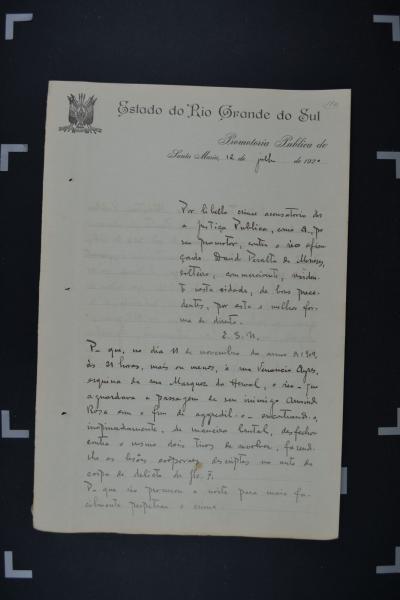 Estado do Rio Grande do Sul
Promotoria Publica de
Santa Maria, 12 de julho de 192
Por libello crime accusatorio diz
a Justiça Publica, como A., por
seu promotor, contra o réo afian
çado David Peralta de Moraes,
solteiro, commerciante, residen-
te nesta cidade, de bons prece-
dentes, por esta e melhor for-
ma de direito.
E. S. N.
P. que, no dia 11 de novembro do anno de 1909,
às 21 horas, mais ou menos, á rua Venancio Ayres,
esquina da rua Marquez do Herval, o réo - que
aguardava a passagem de seu inimigo
Rosa com o fim de aggredil-o - encontrando-o,
inopinadamente, de maneira brutal, desfechou
contra o mesmo dois tiros de revolver, fazendo-
lhe as lesões corporaes descriptas no auto de
corpo de delicto de fls. 7.
P. que réo procurou a noite para mais fa-
cilmente perpetrar o crime.